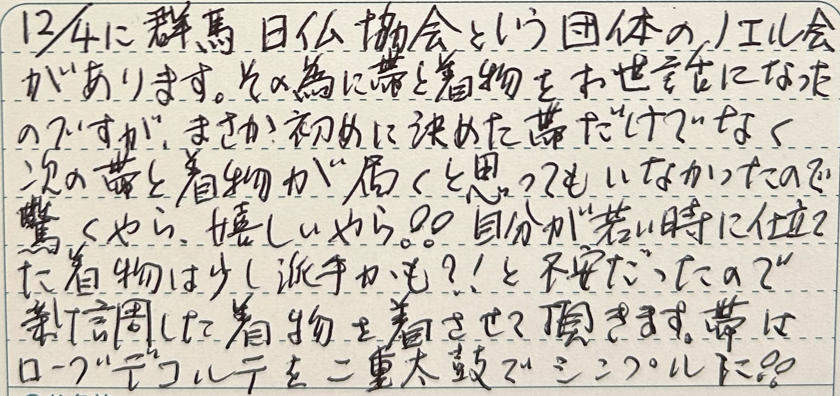 12/4に群馬日仏協会という団体のノエル会
があります。その為に帯と着物をお世話になった
のですが、まさか初めに決めた帯だけでなく
次の帯と着物が届くと思ってもいなかったので
驚くやら、嬉しいやら。!! 自分が若い時に仕立て
た着物は少し派手かも?!と不安だったので
新調した着物を着させて頂きます。帯は
ローブデコルテを二重太鼓でシンプルに!!